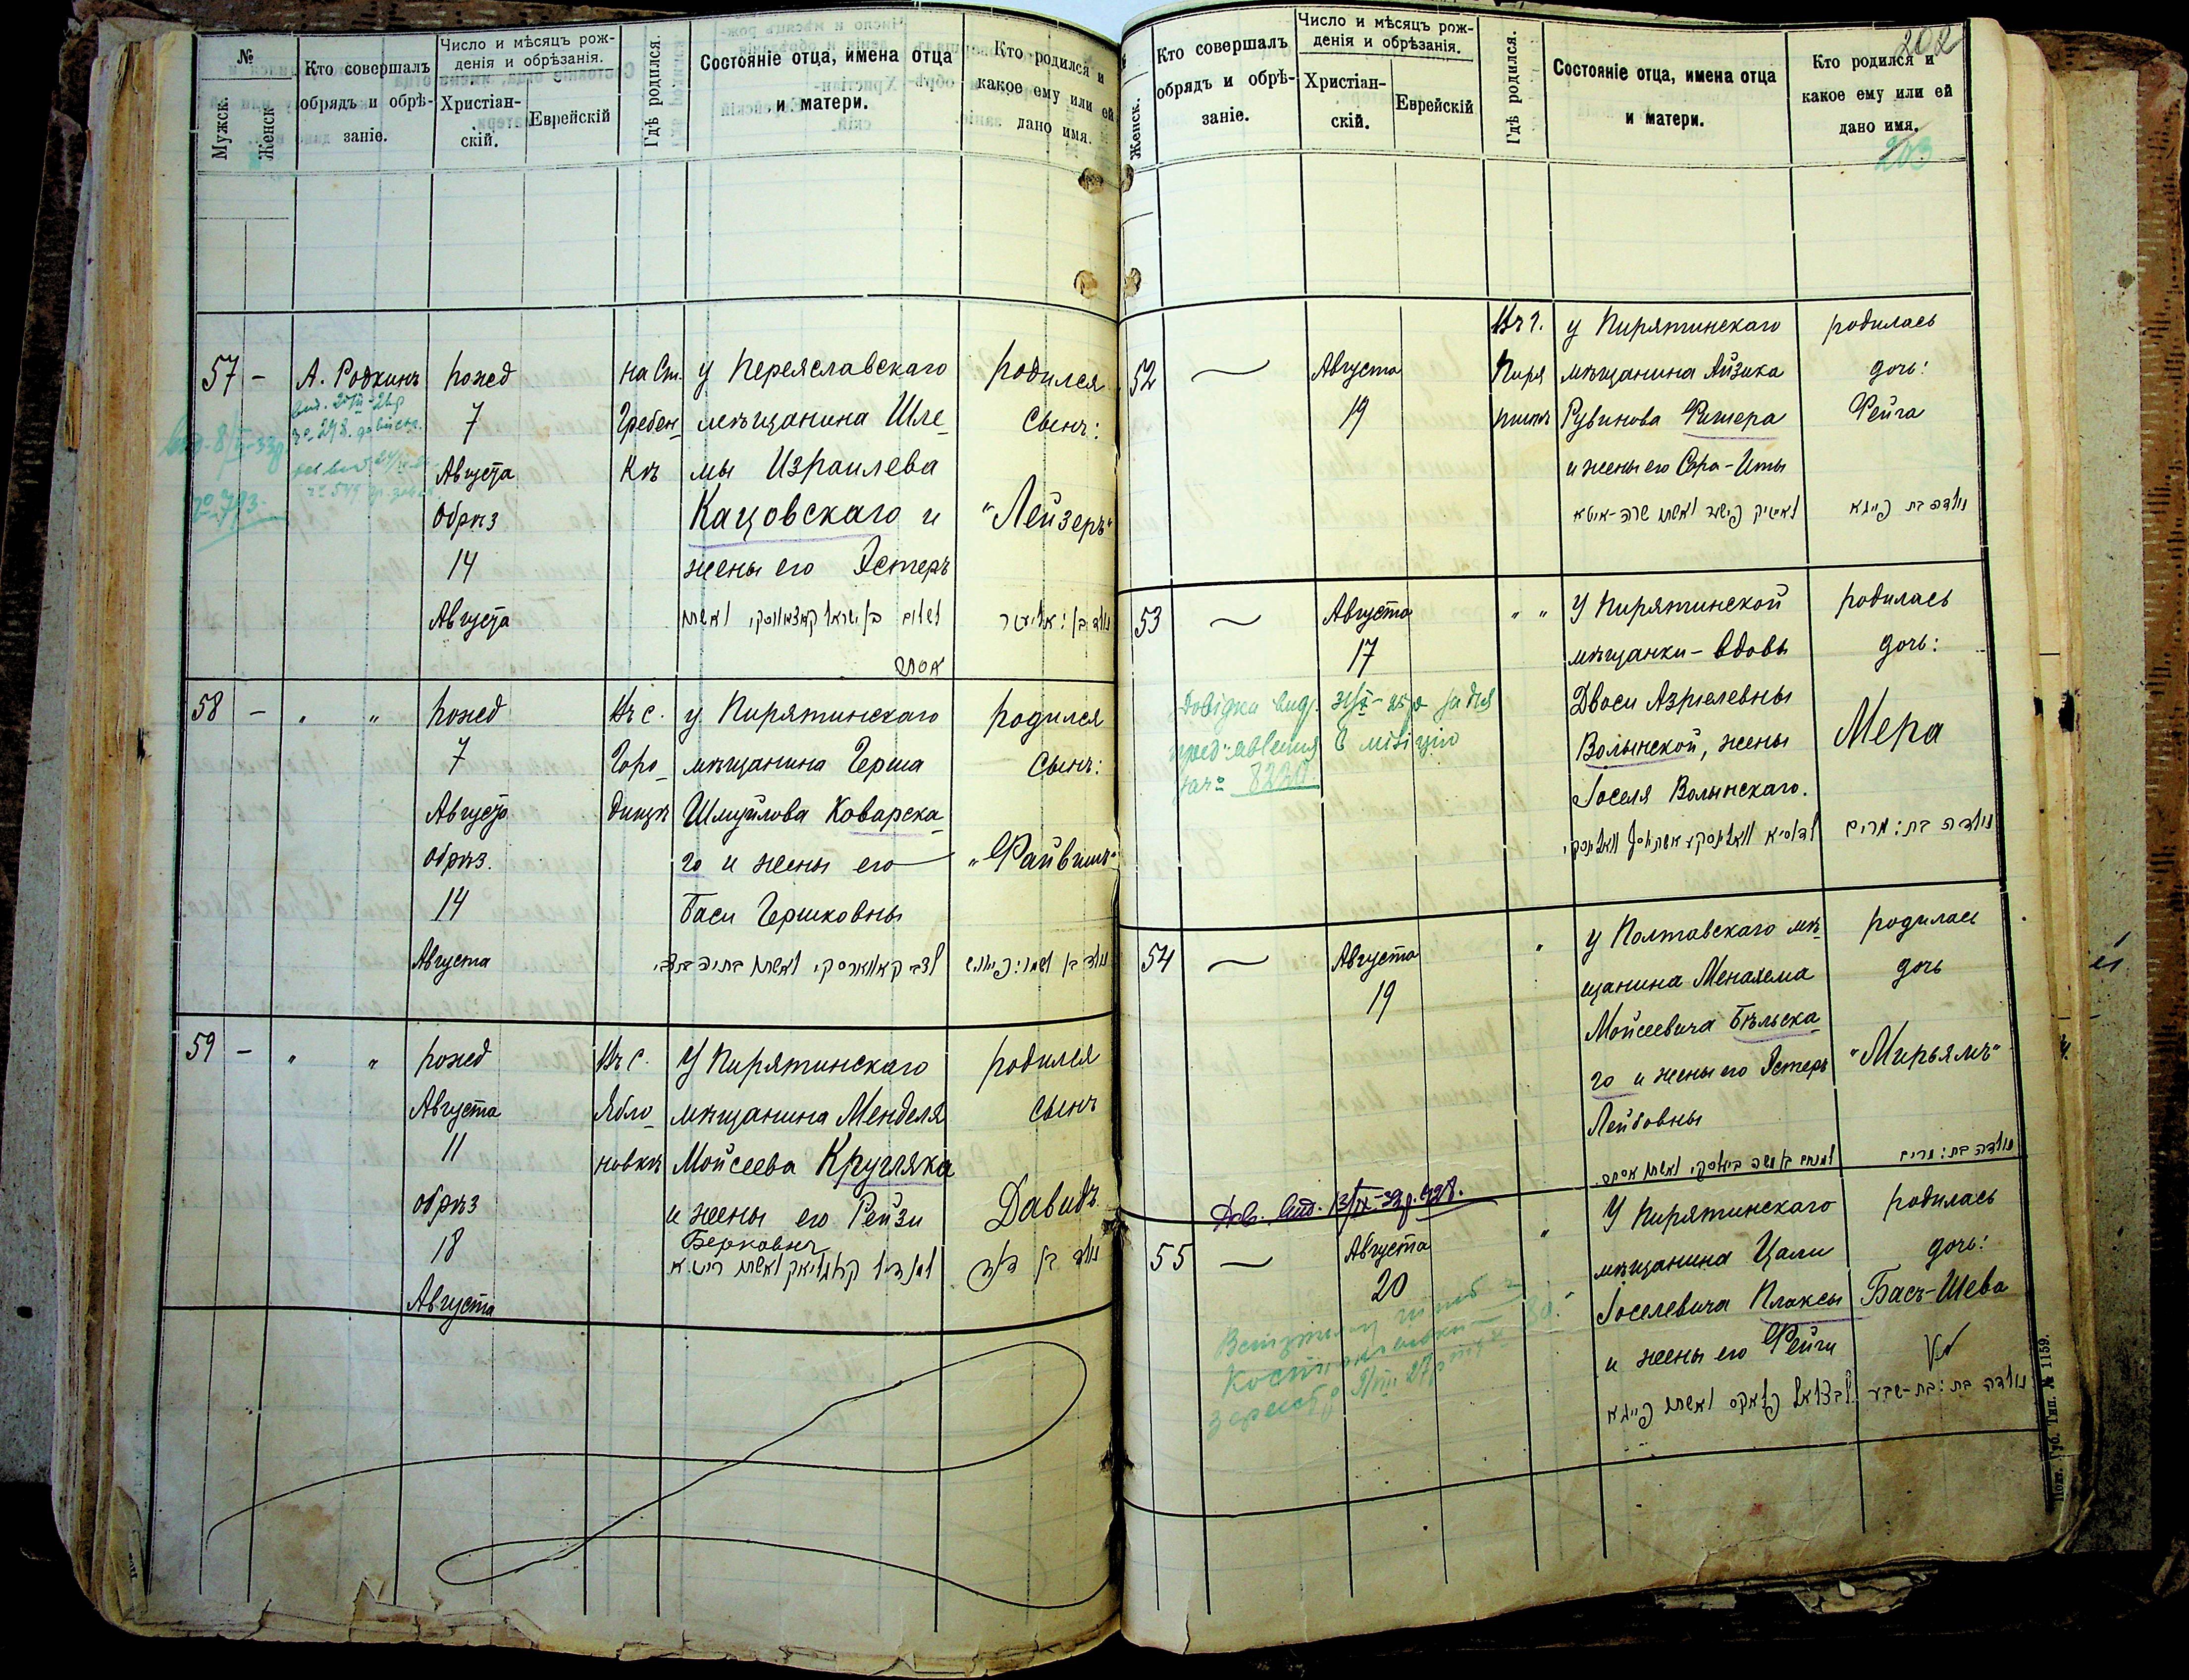 №
Мужск.
Женск
Кто совершалъ
обрядъ и обрѣ-
заніе.
Число и мѣсяцъ рож-
денія и обрѣзанія.
Христіан-
скій.
Еврейскій
Гдѣ родился.
Состояніе отца, имена отца
и матери.
Кто родился и
какое ему или ей
дано имя.
57 –
А. Родкинъ
рожед
7
Августа
Обрѣз
14
Августа
на Ст.
Гребен-
кѣ
у Переяславскаго
мѣщанина Шле-
мы Израилева
Кацовскаго и
жены его Эстеръ
родился
Сынъ:
"Лейзеръ"
58 – " "
рожед
7
Августа
обрѣз.
14
Августа
Въ с.
Горо-
дищѣ
у Пирятинскаго
мѣщанина Герша
Шмуйлова Коварска-
го и жены его
Баси Гершковны
родился
Сынъ:
"Файвишъ"
59 – " "
рожед
Августа
11
обрѣз
18
Августа
Въ с.
Ябло-
новкѣ
У Пирятинскаго
мѣщанина Менделя
Мойсеева Кругляка
и жены его Рейзи
Берковны
родился
сынъ
Давидъ
202
203
Женск.
Кто совершалъ
обрядъ и обрѣ-
заніе.
Число и мѣсяцъ рож-
денія и обрѣзанія.
Христіан-
скій.
Еврейскій
Гдѣ родился.
Состояніе отца, имена отца
и матери.
Кто родился и
какое ему или ей
дано имя.
52
Августа
19
Въ г.
Пиря
тинѣ
у Пирятинскаго
мѣщанина Айзика
Рувинова Фишера
и жены его Сора-Иты
לאייזיק פישער ואשתו שרה-איטא
родилась
дочь:
Фейга
נולדה בת פייגא
53
Августа
17
" "
У Пирятинской
мѣщанки – вдовы
Двоси Азріелевны
Волынской, жены
Іоселя Волынскаго.
родилась
дочь:
Мера
נולדה בת: מרים
8220
54
Августа
19
"
У Полтавскаго мѣ-
щанина Менахема
Мойсеевича Бѣльска-
го и жены его Эстеръ
Лейбовны
родилась
дочь
"Мирьямъ"
נולדה בת: מרים
55
Августа
20
"
У Пирятинскаго
мѣщанина Цали
Іоселевича Плаксы
и жены его Фейги
родилась
дочь:
Басъ-Шева
נולדה בת: בת-שבע
Губ. Тип. № 1159.